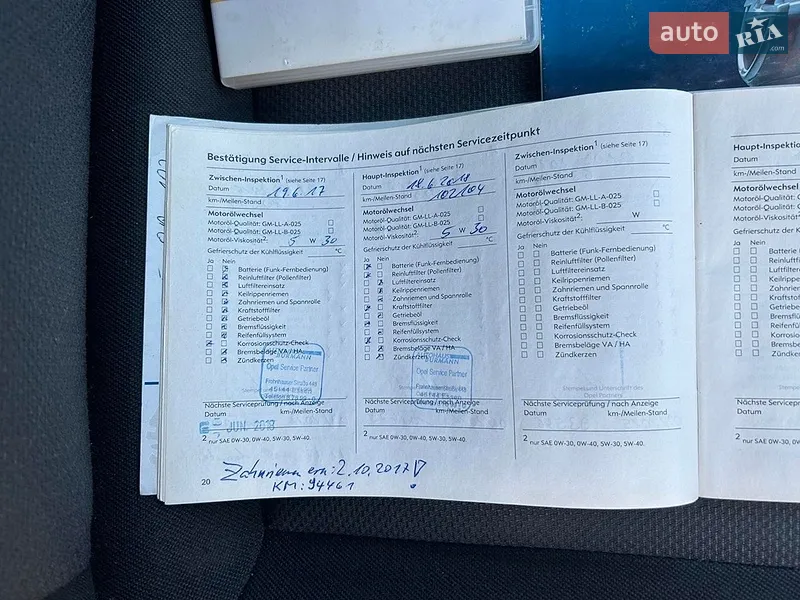 auto RIA .com
Bestätigung Service-Intervalle / Hinweis auf nächsten Servicezeitpunkt
Zwischen-Inspektion1 (siehe Seite 17)
Datum 19.6.17
km-/Meilen-Stand
Motorölwechsel
Motoröl-Qualität: GM-LL-A-025
Motoröl-Qualität: GM-LL-B-025
Motoröl-Viskosität2: 5 W 30
Gefrierschutz der Kühlflüssigkeit °C
Ja Nein
Batterie (Funk-Fernbedienung)
Reinluftfilter (Pollenfilter)
Luftfiltereinsatz
Keilrippenriemen
Zahnriemen und Spannrolle
Kraftstofffilter
Getriebeöl
Bremsflüssigkeit
Reifenfüllsystem
Korrosionsschutz-Check
Bremsbeläge VA / HA
Zündkerzen
Opel Service Partner
Nächste Serviceprüfung / nach Anzeige
Datum km-/Meilen-Stand
JUNI 2018
2 nur SAE 0W-30, 0W-40, 5W-30, 5W-40.
Haupt-Inspektion1 (siehe Seite 17)
Datum 18.6.2018
km-/Meilen-Stand 102104
Motorölwechsel
Motoröl-Qualität: GM-LL-A-025
Motoröl-Qualität: GM-LL-B-025
Motoröl-Viskosität2: 5 W 30
Gefrierschutz der Kühlflüssigkeit °C
Ja Nein
Batterie (Funk-Fernbedienung)
Reinluftfilter (Pollenfilter)
Luftfiltereinsatz
Keilrippenriemen
Zahnriemen und Spannrolle
Kraftstofffilter
Getriebeöl
Bremsflüssigkeit
Reifenfüllsystem
Korrosionsschutz-Check
Bremsbeläge VA / HA
Zündkerzen
Opel Service Partner
Nächste Serviceprüfung / nach Anzeige
Datum km-/Meilen-Stand
2 nur SAE 0W-30, 0W-40, 5W-30, 5W-40.
Zwischen-Inspektion1 (siehe Seite 17)
Datum
km-/Meilen-Stand
Motorölwechsel
Motoröl-Qualität: GM-LL-A-025
Motoröl-Qualität: GM-LL-B-025
Motoröl-Viskosität2: W
Gefrierschutz der Kühlflüssigkeit °C
Ja Nein
Batterie (Funk-Fernbedienung)
Reinluftfilter (Pollenfilter)
Luftfiltereinsatz
Keilrippenriemen
Zahnriemen und Spannrolle
Kraftstofffilter
Getriebeöl
Bremsflüssigkeit
Reifenfüllsystem
Korrosionsschutz-Check
Bremsbeläge VA / HA
Zündkerzen
Stempel und Unterschrift des
Opel Partners
Nächste Serviceprüfung / nach Anzeige
Datum km-/Meilen-Stand
2 nur SAE 0W-30, 0W-40, 5W-30, 5W-40.
20
Zahnriemen ern: 2.10.2017!
KM: 94461
Haupt-Inspektio
Datum
km-/Meilen-Stand
Motorölwechsel
Motoröl-Qualität:
Motoröl-Qualität:
Motoröl-Viskosität
Gefrierschutz der
Ja Nein
Batter
Reinlu
Luftfi
Keilri
Zahn
Kraft
Getr
Brem
Reife
Korr
Bre
Zün
Nächste Service
Datum
2 nur SAE 0W-30,